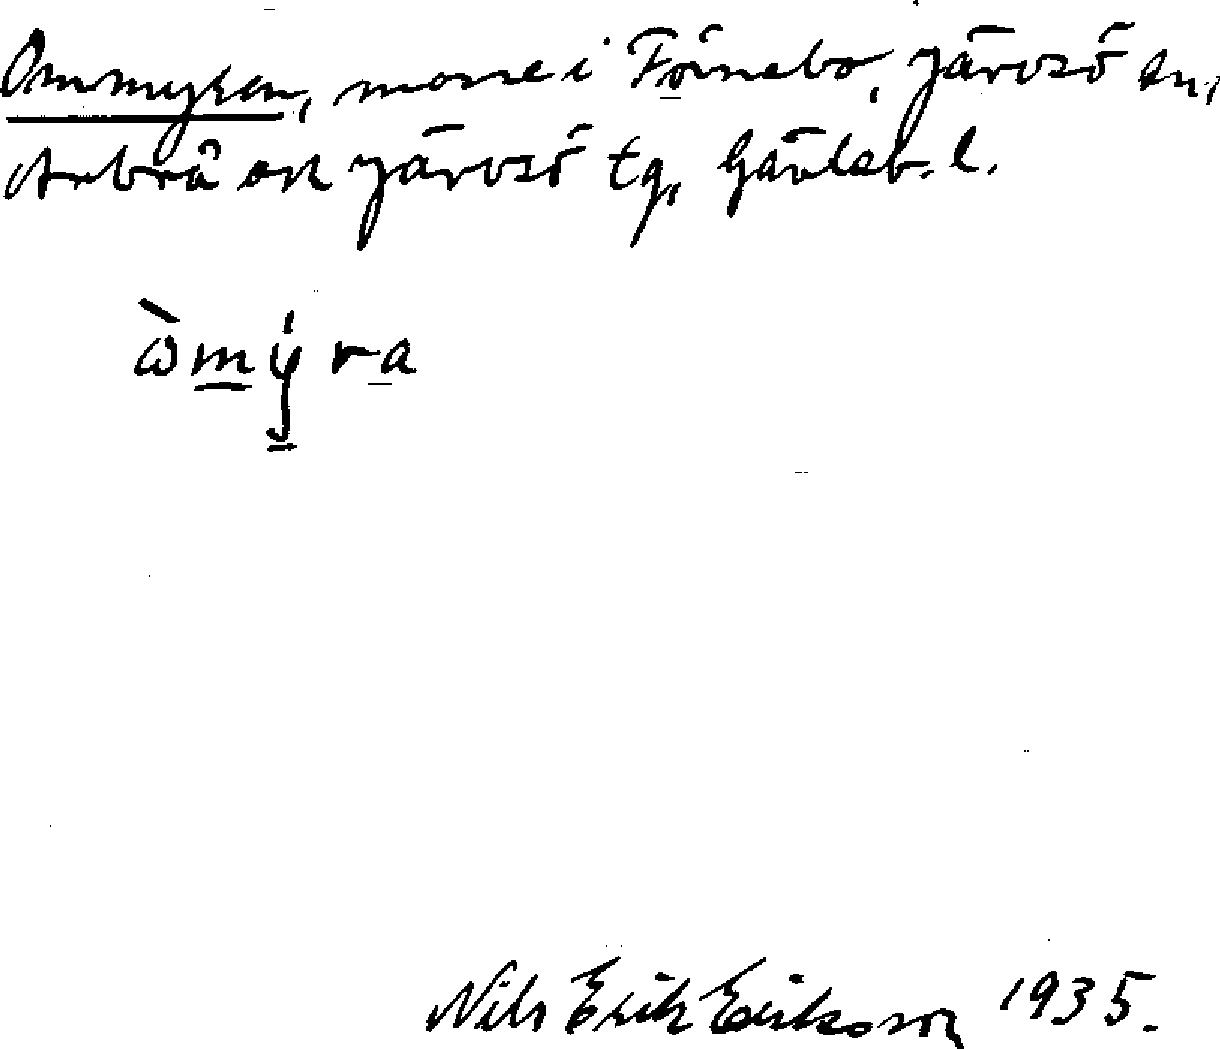 Ommyran, mosse i Förnebo, Järvsö sn,
Arbrå och Järvsö tg, Gävleb. l.
ὼmy̍ra
Nils Erik Eriksson 1935.